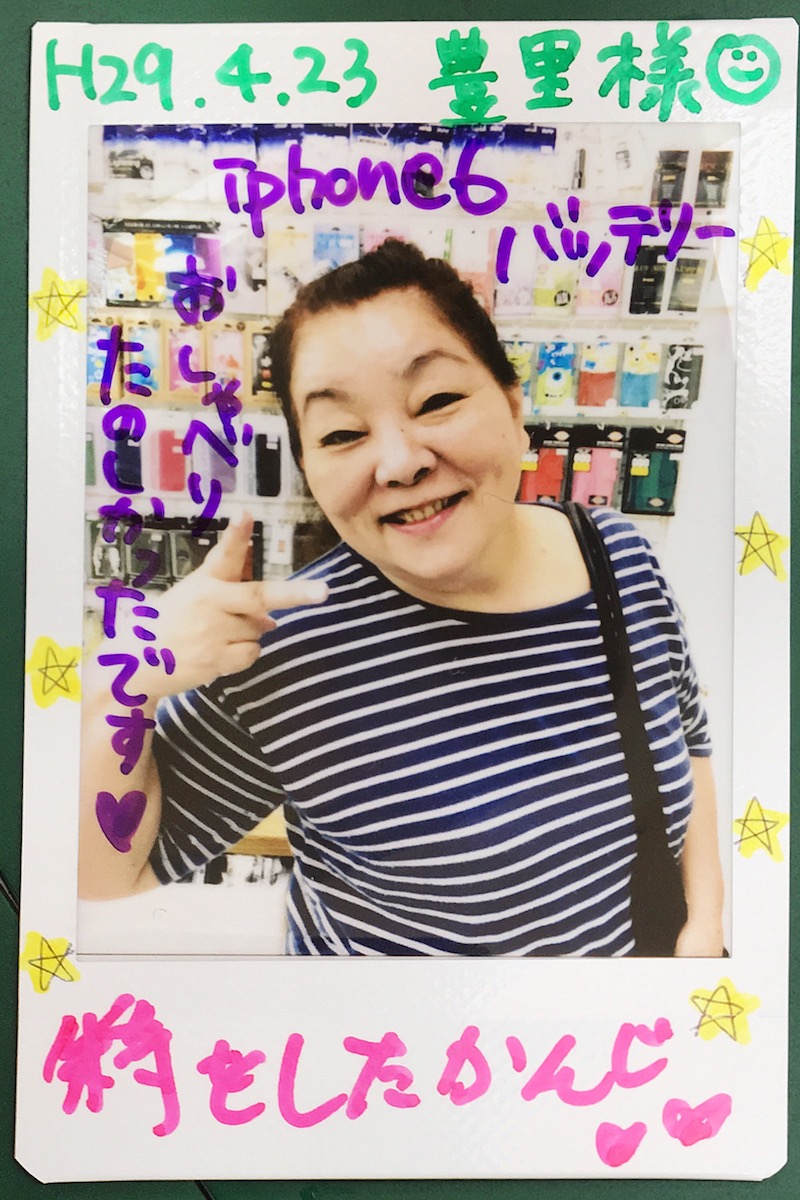 H29.4.23 豊里様
Iphone6
バッテリー
おしゃべり
たのしかったです
をしたかんじ